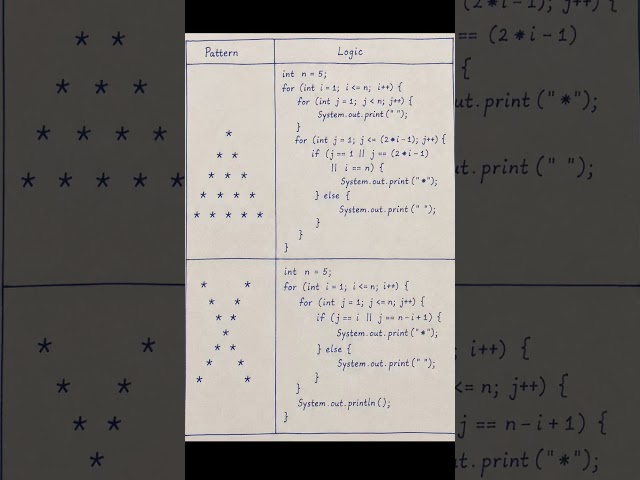 Pattern
Logic
*
* *
* * *
* * * *
* * * * *
int n = 5;
for (int i = 1; i <= n; i++) {
for (int j = 1; j < n; j++) {
System.out.print (" ");
}
for (int j = 1; j <= (2*i-1); j++) {
if (j == 1 || j == (2*i-1)
|| i == n) {
System.out.print ("*");
} else {
System.out.print (" ");
}
}
}
* *
* *
* *
*
* *
* *
* *
int n = 5;
for (int i = 1; i <= n; i++) {
for (int j = 1; j <= n; j++) {
if (j == i || j == n-i+1) {
System.out.print ("*");
} else {
System.out.print (" ");
}
}
System.out.println ();
}
* *
* * *
* * * *
* * * * *
* *
* *
* *
*
(2*i-1); j++) {
== (2*i-1)
{
ut.print ("*");
ut.print (" ");
i++) {
<= n; j++) {
j == n-i+1) {
t.print ("*");